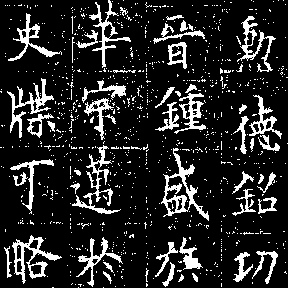 勲德銘功
晉鍾盛族
華宗邁於
史牒可略